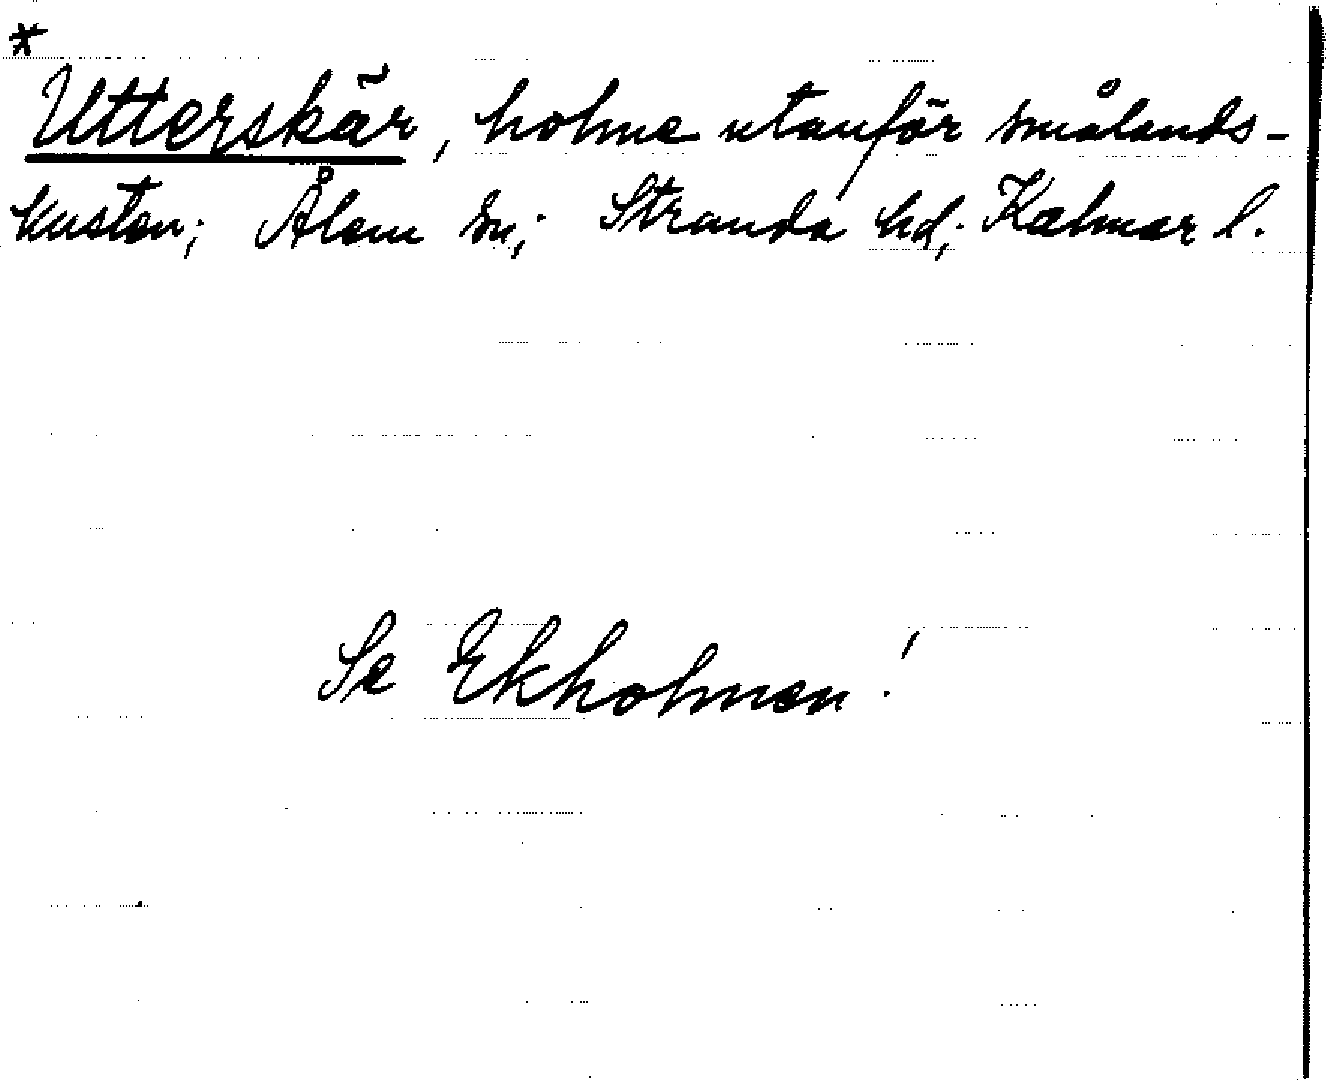 *
Utterskär, holme utanför smålands-
kusten; Ålem sn; Stranda hd; Kalmar l.
Se Ekholmen!